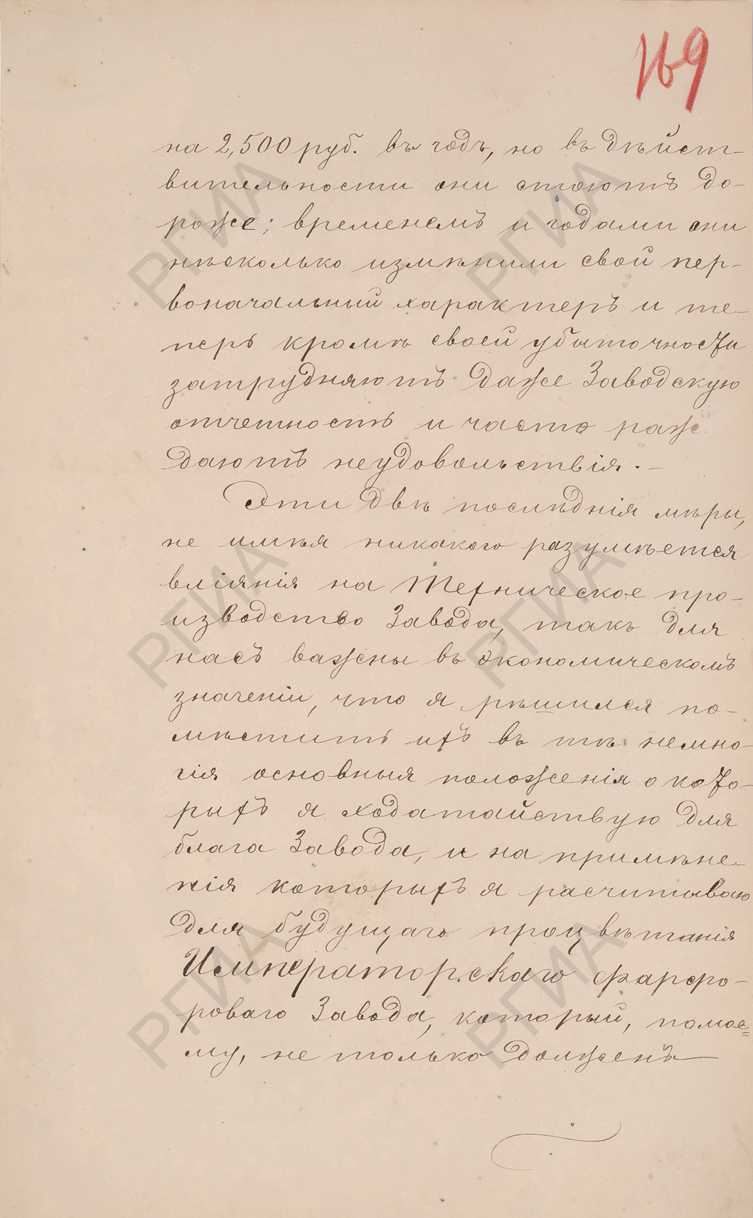 169
на 2,500 руб. въ годъ, но въ дѣйст-
вительности они стоютъ до-
роже; временемъ и годами они
нѣсколько измѣнили свой пер-
воначальный характеръ и те-
перь кромѣ своей убыточности
затрудняютъ даже Заводскую
отчетность и часто раж
даютъ неудовольствія. —
Эти двѣ послѣднія мѣры,
не имѣя никакого разумѣется
вліянія на Техническое про-
изводство Завода, такъ для
насъ важны въ экономическомъ
значеніи, что я рѣшился по-
мѣстить ихъ въ тѣ немно-
гія основныя положенія о кото-
рыхъ я ходатайствую для
блага Завода, и на примѣне-
нія которыхъ я расчитываю
для будущаго процвѣтанія
Императорскаго фарфо-
роваго Завода, который, помое-
му, не только долженъ
РГИА
РГИА
РГИА
РГИА
РГИА
РГИА